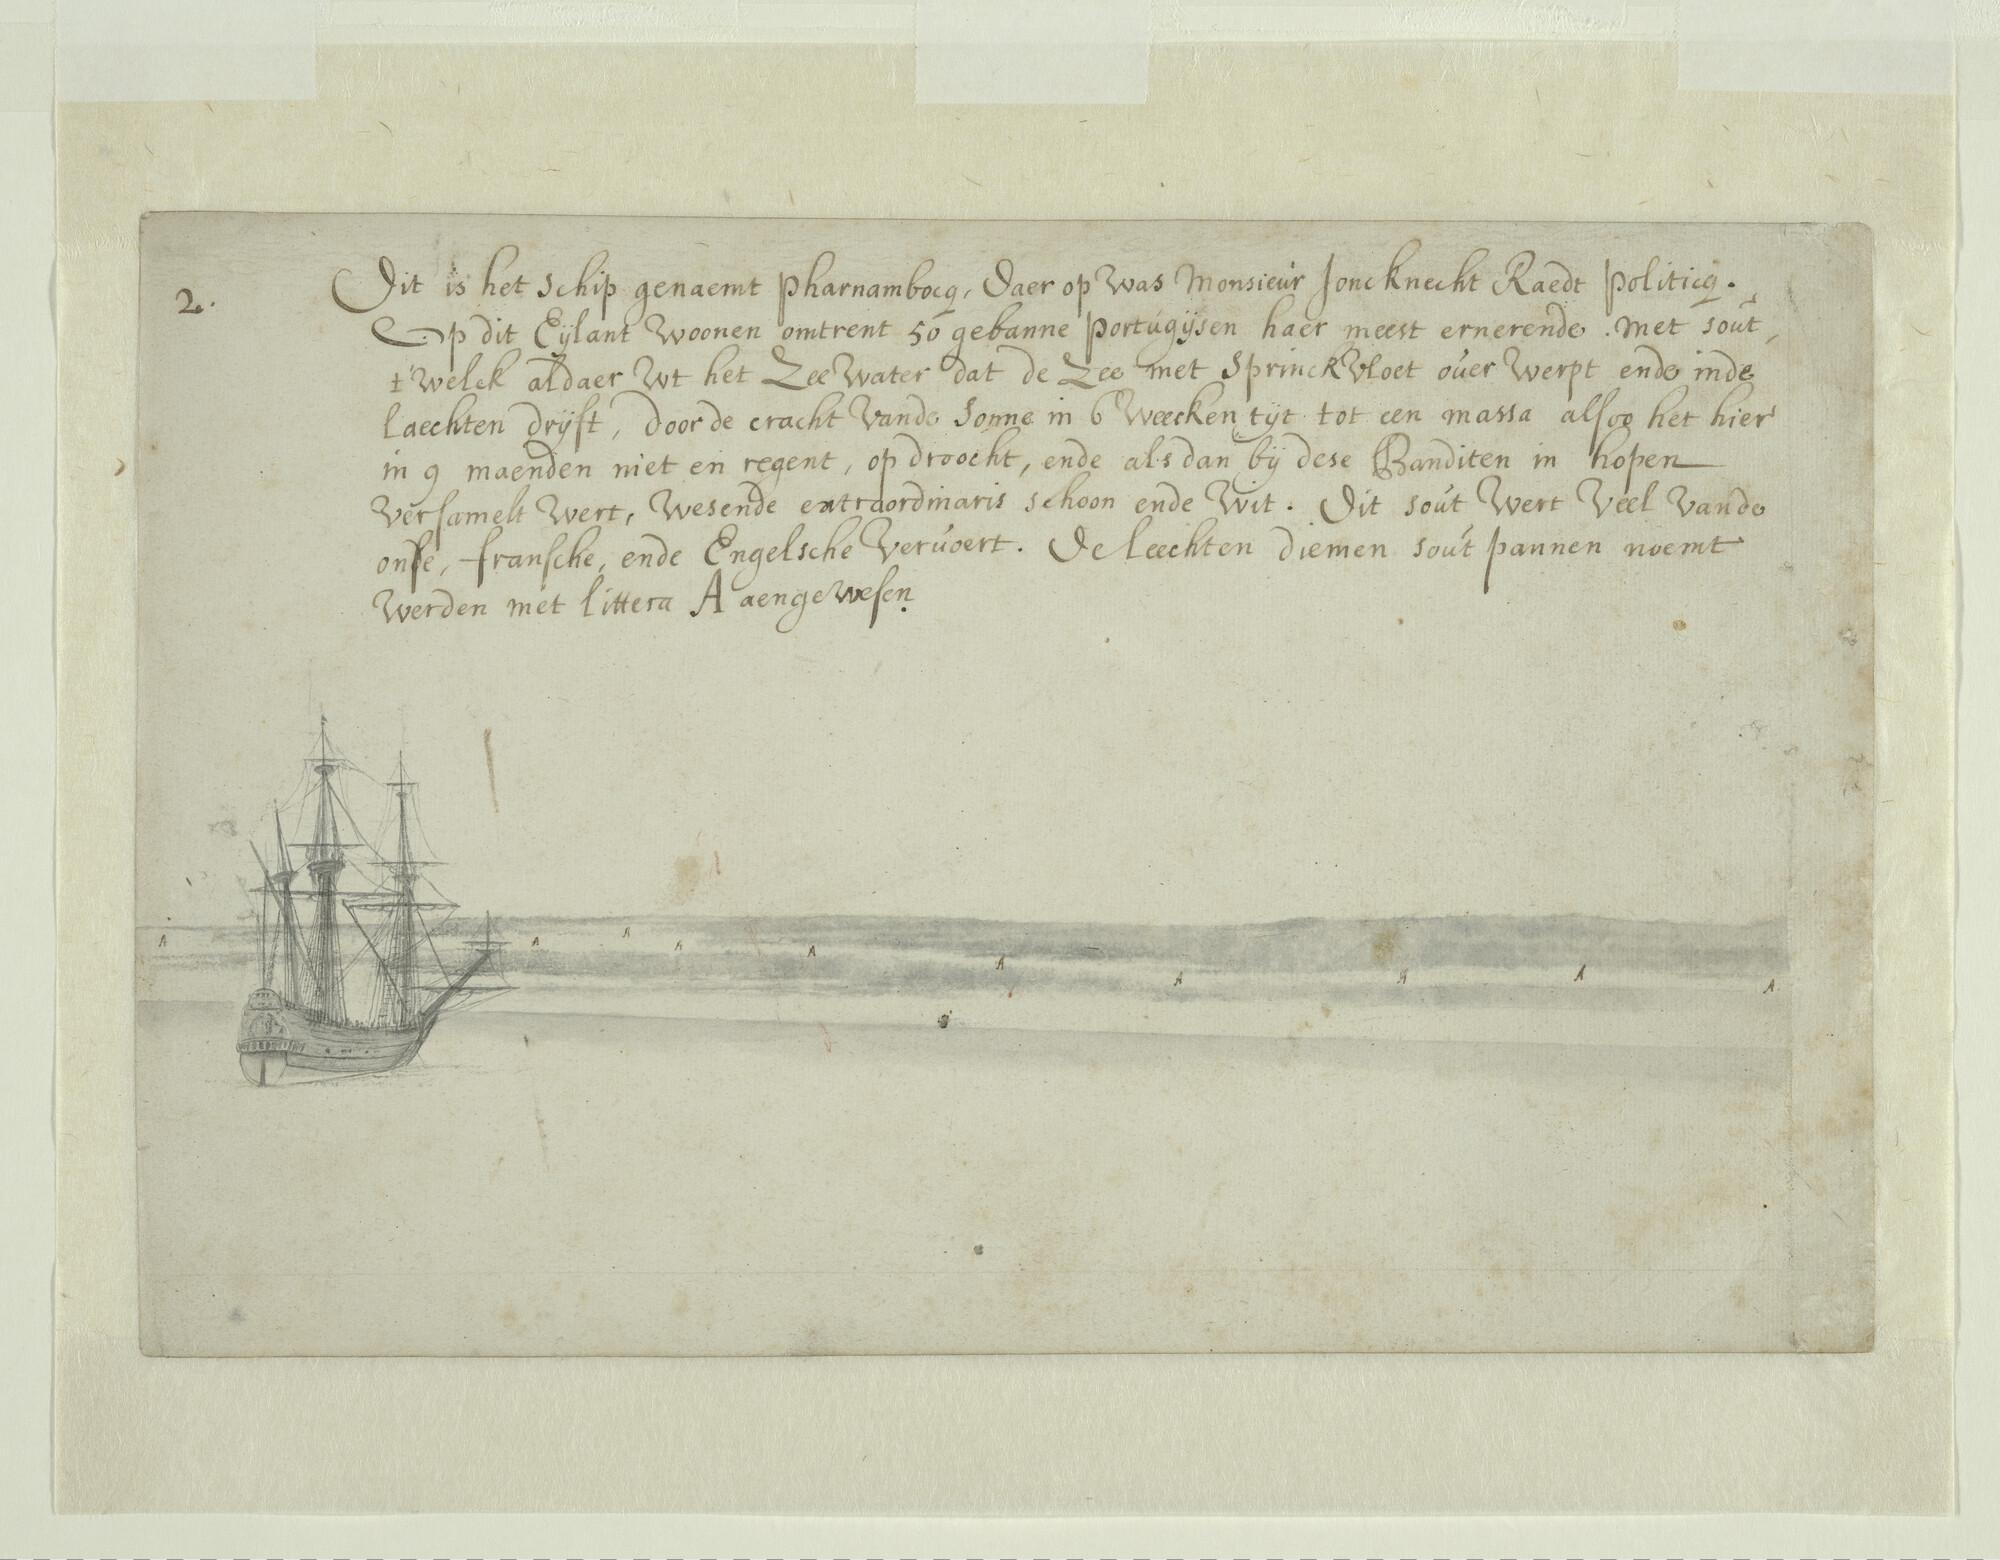 2. Dit is het schip genaemt Pharnambocq, Daer op was Monsieur Joncknecht Raedt Politicq.
Op dit Eijlant woonen omtrent 50 gebanne Portugijsen haer meest ernerende . met sout,
t'welck aldaer wt het Zee water dat de Zee met Sprinckvloet over werpt ende inde
laechten drijft, door de cracht vande Sonne in 6 weecken tijt tot een massa alsoo het hier
in 9 maenden niet en regent, op droocht, ende als dan bij dese Banditen in hopen
versamelt wert, wesende extraordinaris schoon ende wit. Dit sout wert veel vande
onse, fransche, ende Engelsche vervoert. De leechten diemen sout pannen noemt
werden met littera A aengewesen.
A A A A A A A A A A